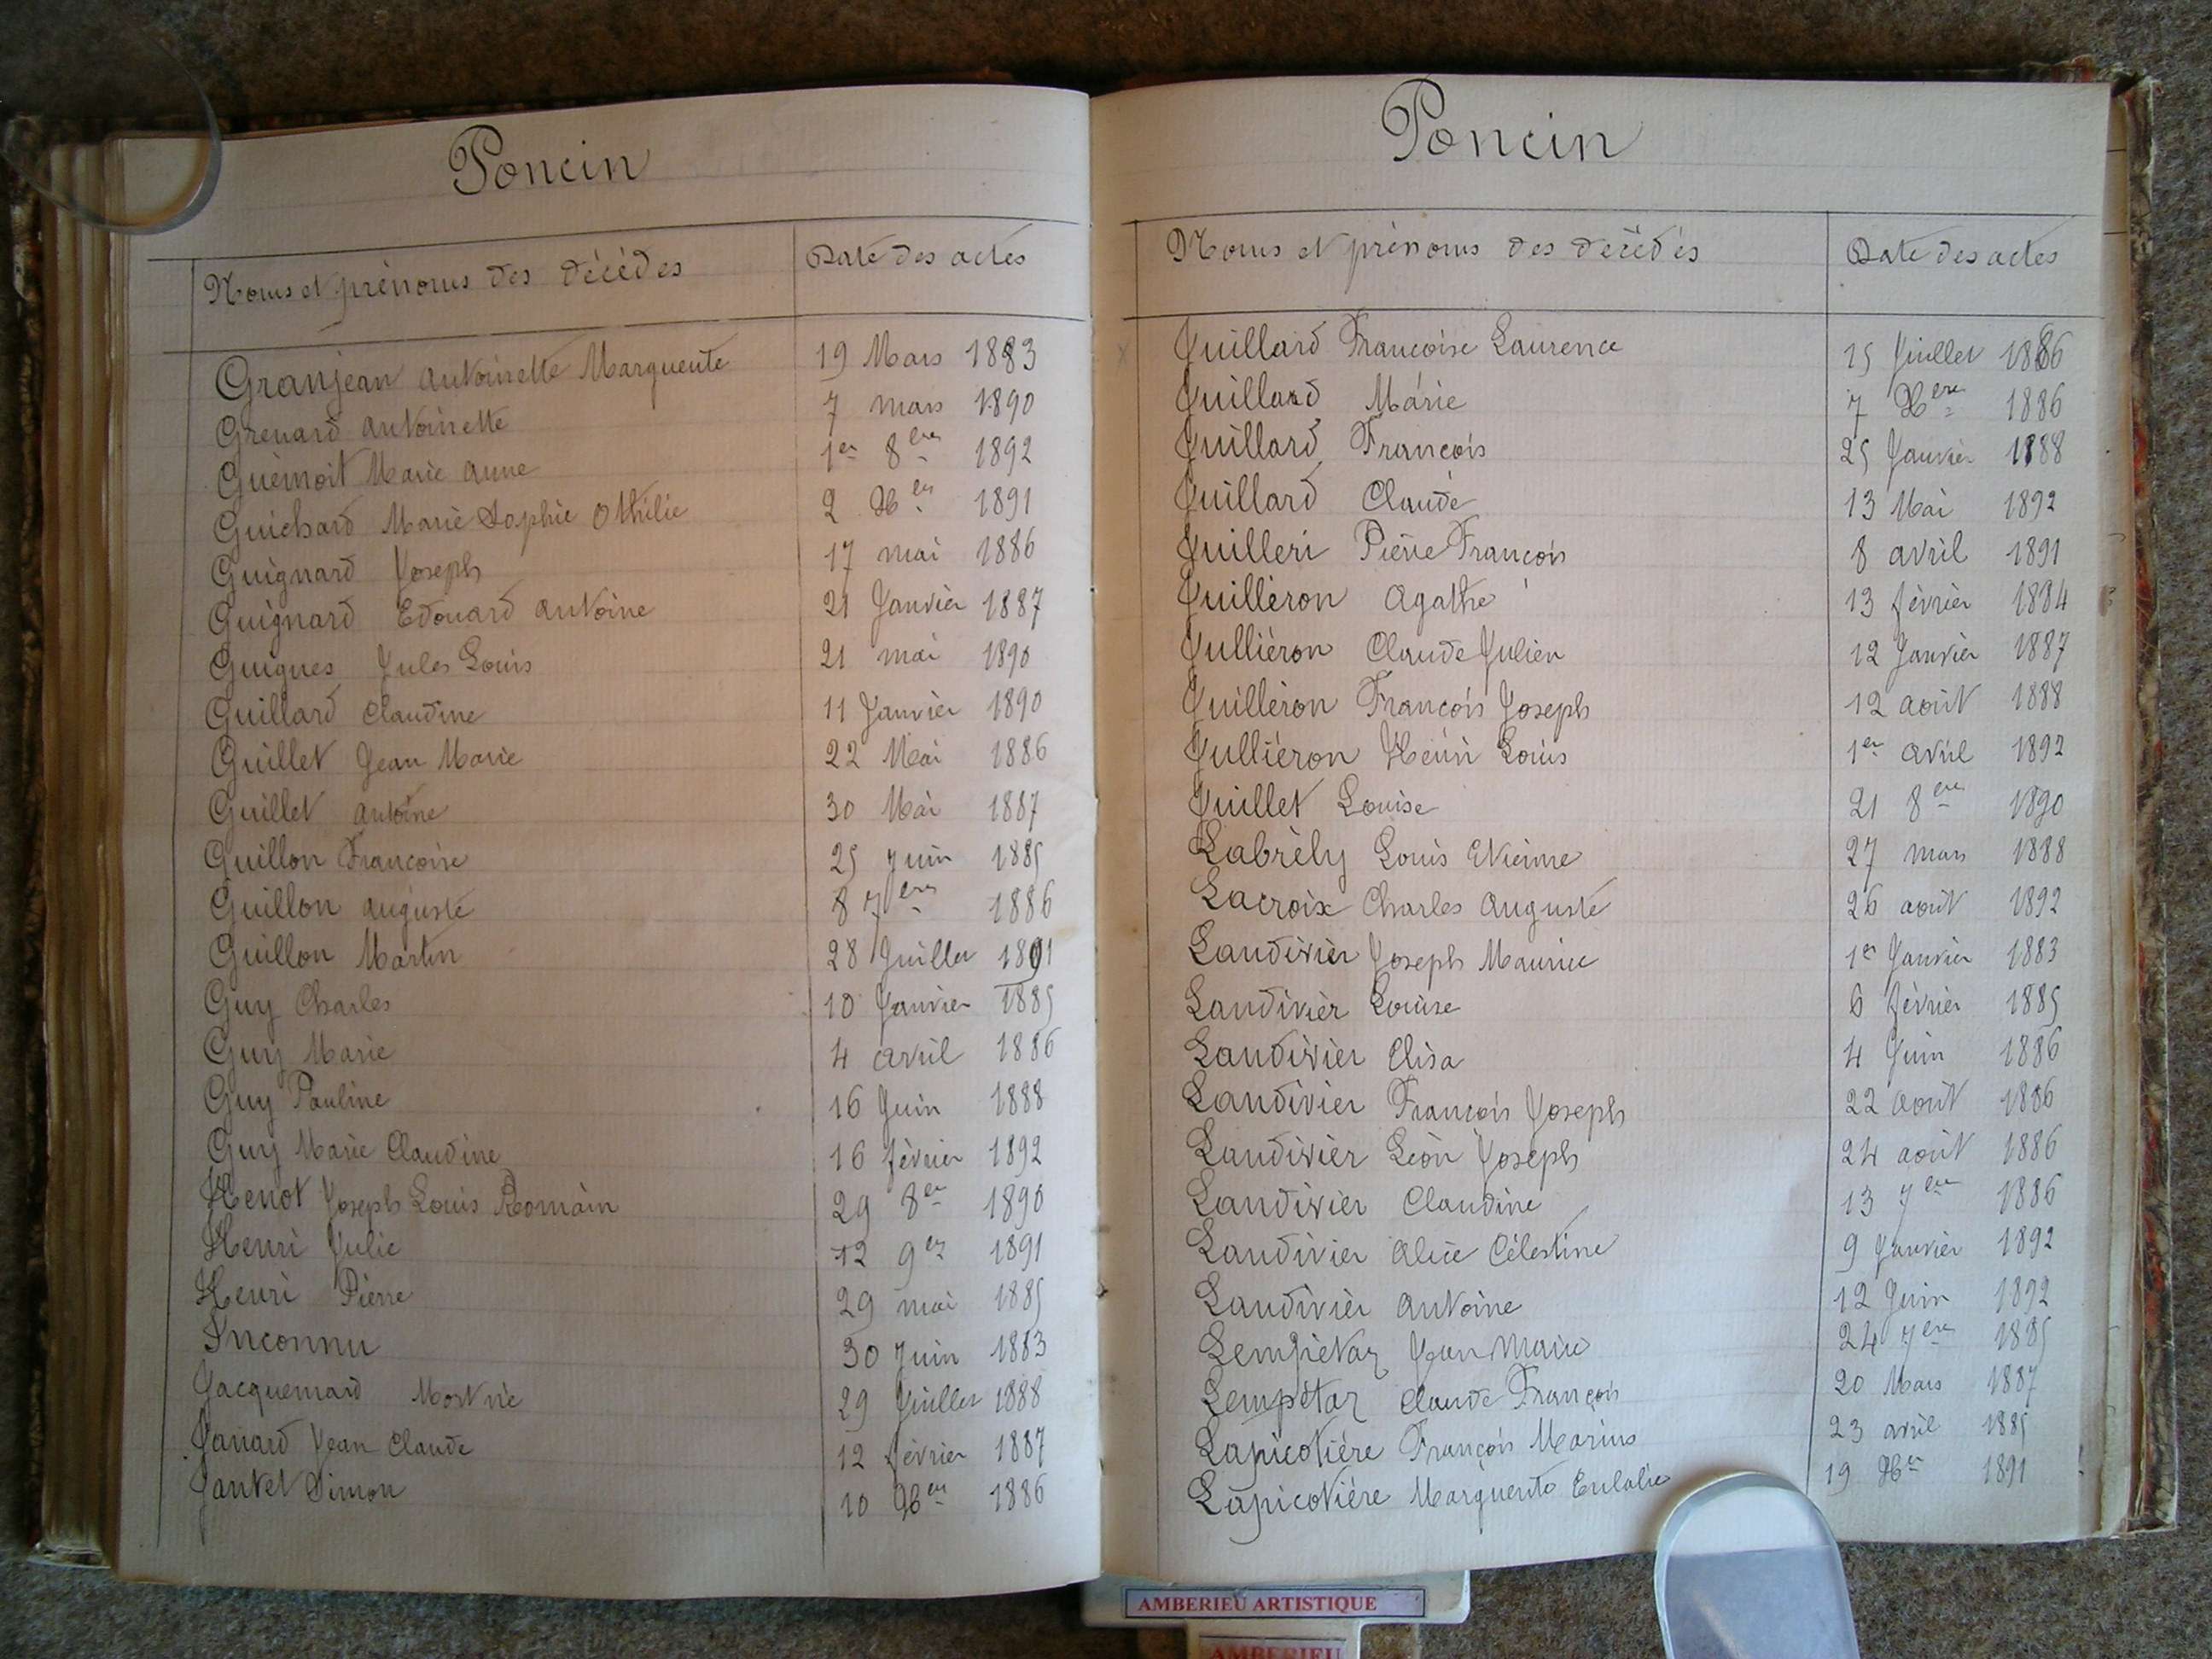 Poncin
Noms et prénoms des décédés Date des actes
Granjean Antoinette Marguerite 19 Mars 1883
Grenard Antoinette 7 mars 1890
Guemoit Marie Anne 1er 8bre 1892
Guichard Marie Sophie Othilie 2 Xbre 1891
Guignard Joseph 17 mai 1886
Guignard Edouard Antoine 21 Janvier 1887
Guigues Jules Louis 21 mai 1890
Guillard Claudine 11 Janvier 1890
Guillet Jean Marie 22 Mai 1886
Guillet Antoine 30 Mai 1887
Guillon Françoise 25 Juin 1885
Guillon Auguste 8 7bre 1886
Guillon Martin 28 Juillet 1891
Guy Charles 10 Janvier 1885
Guy Marie 4 avril 1886
Guy Pauline 16 Juin 1888
Guy Marie Claudine 16 février 1892
Henot Joseph Louis Romain 29 8bre 1890
Henri Julie 12 9bre 1891
Henri Pierre 29 mai 1885
Inconnu 30 Juin 1883
Jacquemard Mort né 29 Juillet 1888
Janard Jean Claude 12 février 1887
Jantet Simon 10 Xbre 1886
Poncin
Noms et prénoms des décédés Date des actes
Juillard Françoise Laurence 15 Juillet 1886
Juillard Marie 7 Xbre 1886
Juillard François 25 Janvier 1888
Juillard Claude 13 Mai 1892
Juilleri Pierre François 8 avril 1891
Juilléron Agathe 13 février 1884
Julliéron Claude Julien 12 Janvier 1887
Juilléron François Joseph 12 août 1888
Julliéron Henri Louis 1er avril 1892
Juillet Louise 21 8bre 1890
Labrély Louis Etienne 27 mars 1888
Lacroix Charles Auguste 26 août 1892
Landivier Joseph Maurice 1er Janvier 1883
Landivier Louise 6 février 1885
Landivier Elisa 4 Juin 1886
Landivier François Joseph 22 août 1886
Landivier Léon Joseph 24 août 1886
Landivier Claudine 13 7bre 1886
Landivier Alice Célestine 9 Janvier 1892
Landivier Antoine 12 Juin 1892
Lempietaz Jean Marie 24 7bre 1885
Lempétaz Claude François 20 Mars 1887
Lapicotière François Marius 23 avril 1885
Lapicotière Marguerite Eulalie 19 Xbre 1891
AMBERIEU ARTISTIQUE
AMBERIEU